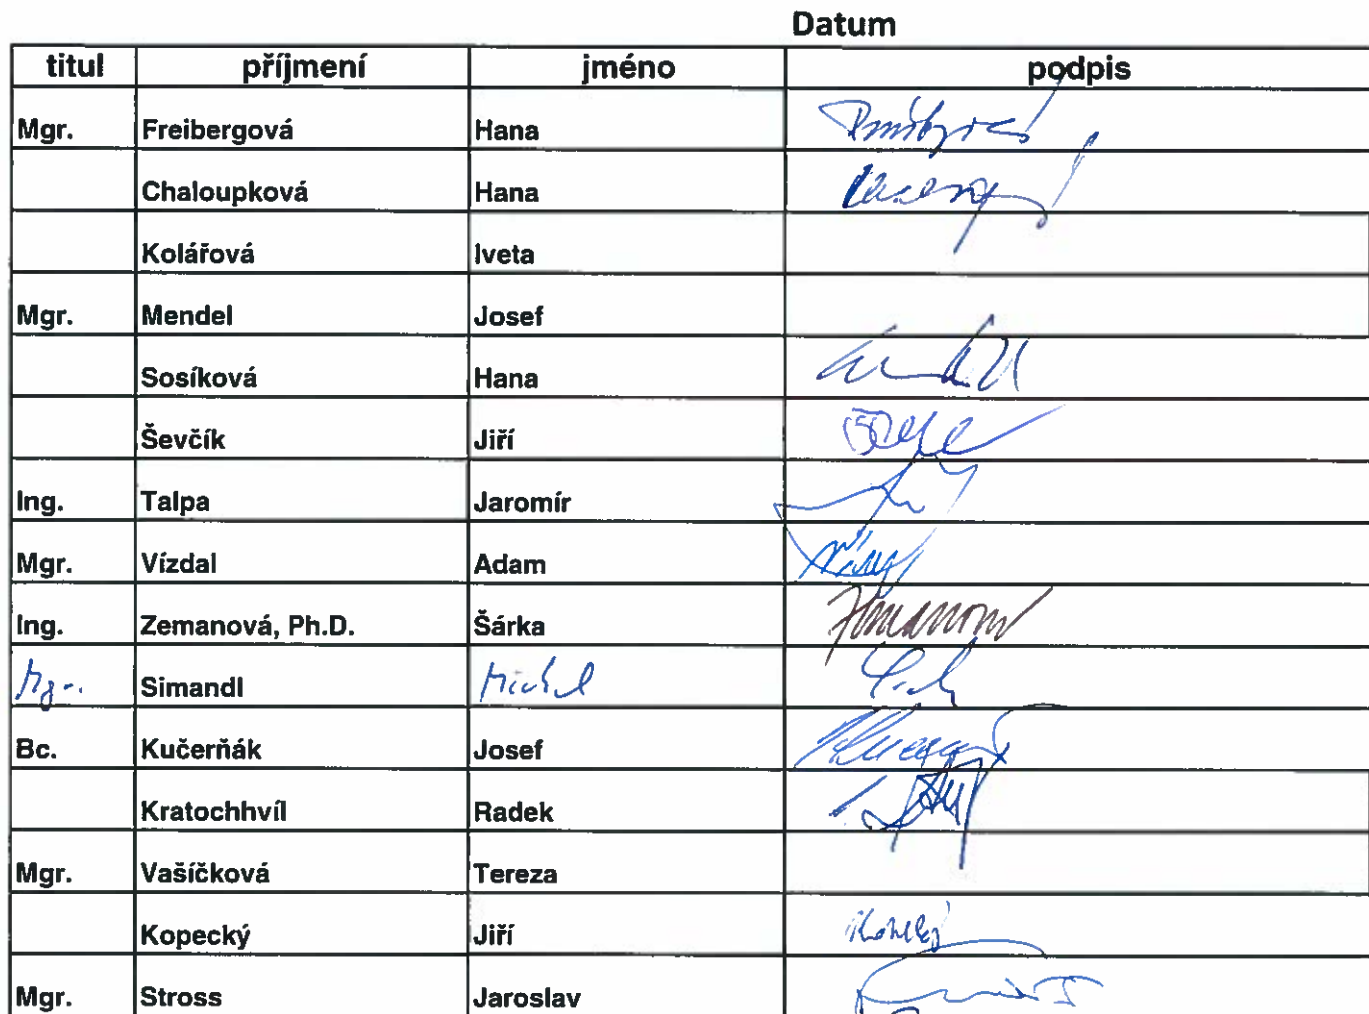 Datum
titul příjmení jméno podpis
Mgr. Freibergová Hana
Chaloupková Hana
Kolářová Iveta
Mgr. Mendel Josef
Sosíková Hana
Ševčík Jiří
Ing. Talpa Jaromír
Mgr. Vízdal Adam
Ing. Zemanová, Ph.D. Šárka
Mgr. Simandl Michal
Bc. Kučerňák Josef
Kratochhvíl Radek
Mgr. Vašíčková Tereza
Kopecký Jiří
Mgr. Stross Jaroslav